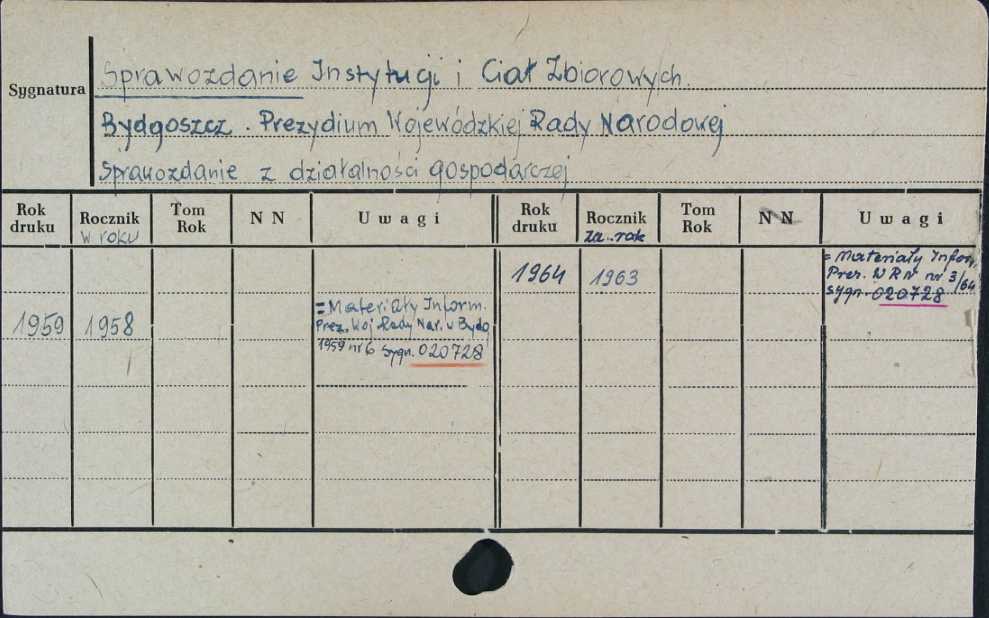 Sygnatura
Sprawozdanie Instytucji i Ciał Zbiorowych.
Bydgoszcz. Prezydium Wojewódzkiej Rady Narodowej
Sprawozdanie z działalności gospodarczej
Rok druku Rocznik w roku Tom Rok NN Uwagi Rok druku Rocznik za rok Tom Rok NN Uwagi
1964 1963 = Materiały Inform.
Prez. WRN nr 3/64
sygn. 020728
1959 1958 = Materiały Inform.
Prez. Woj. Rady Nar. w Bydg
1959 nr 6 sygn. 020728